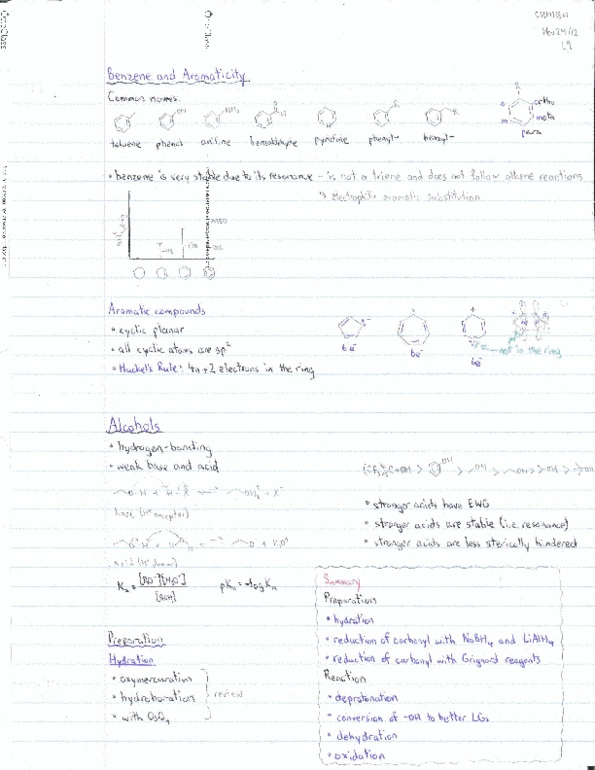 Nov 24/12
L9
Benzene and Aromaticity
Common names:
toluene phenol aniline benzaldehyde pyridine phenyl- benzyl-
ortho
meta
para
• benzene is very stable due to its resonance - is not a triene and does not follow alkene reactions
↳ electrophilic aromatic substitution
Aromatic compounds
• cyclic planar
• all cyclic atoms are sp²
• Huckel's Rule: 4n+2 electrons in the ring
6e⁻ 6e⁻ 6e⁻
not in the ring
Alcohols
• hydrogen-bonding
• weak base and acid
• stronger acids have EWG
• stronger acids are stable (i.e. resonance)
• stronger acids are less sterically hindered
base (H⁺ acceptor)
acid (H⁺ donor)
Ka = [RO⁻][H₃O⁺] / [ROH] pKa = -log Ka
Preparation
Hydration
• oxymercuration
• hydroboration
• with OsO₄
review
Summary
Preparation
• hydration
• reduction of carbonyl with NaBH₄ and LiAlH₄
• reduction of carbonyl with Grignard reagents
Reaction
• deprotonation
• conversion of -OH to better LGs
• dehydration
• oxidation